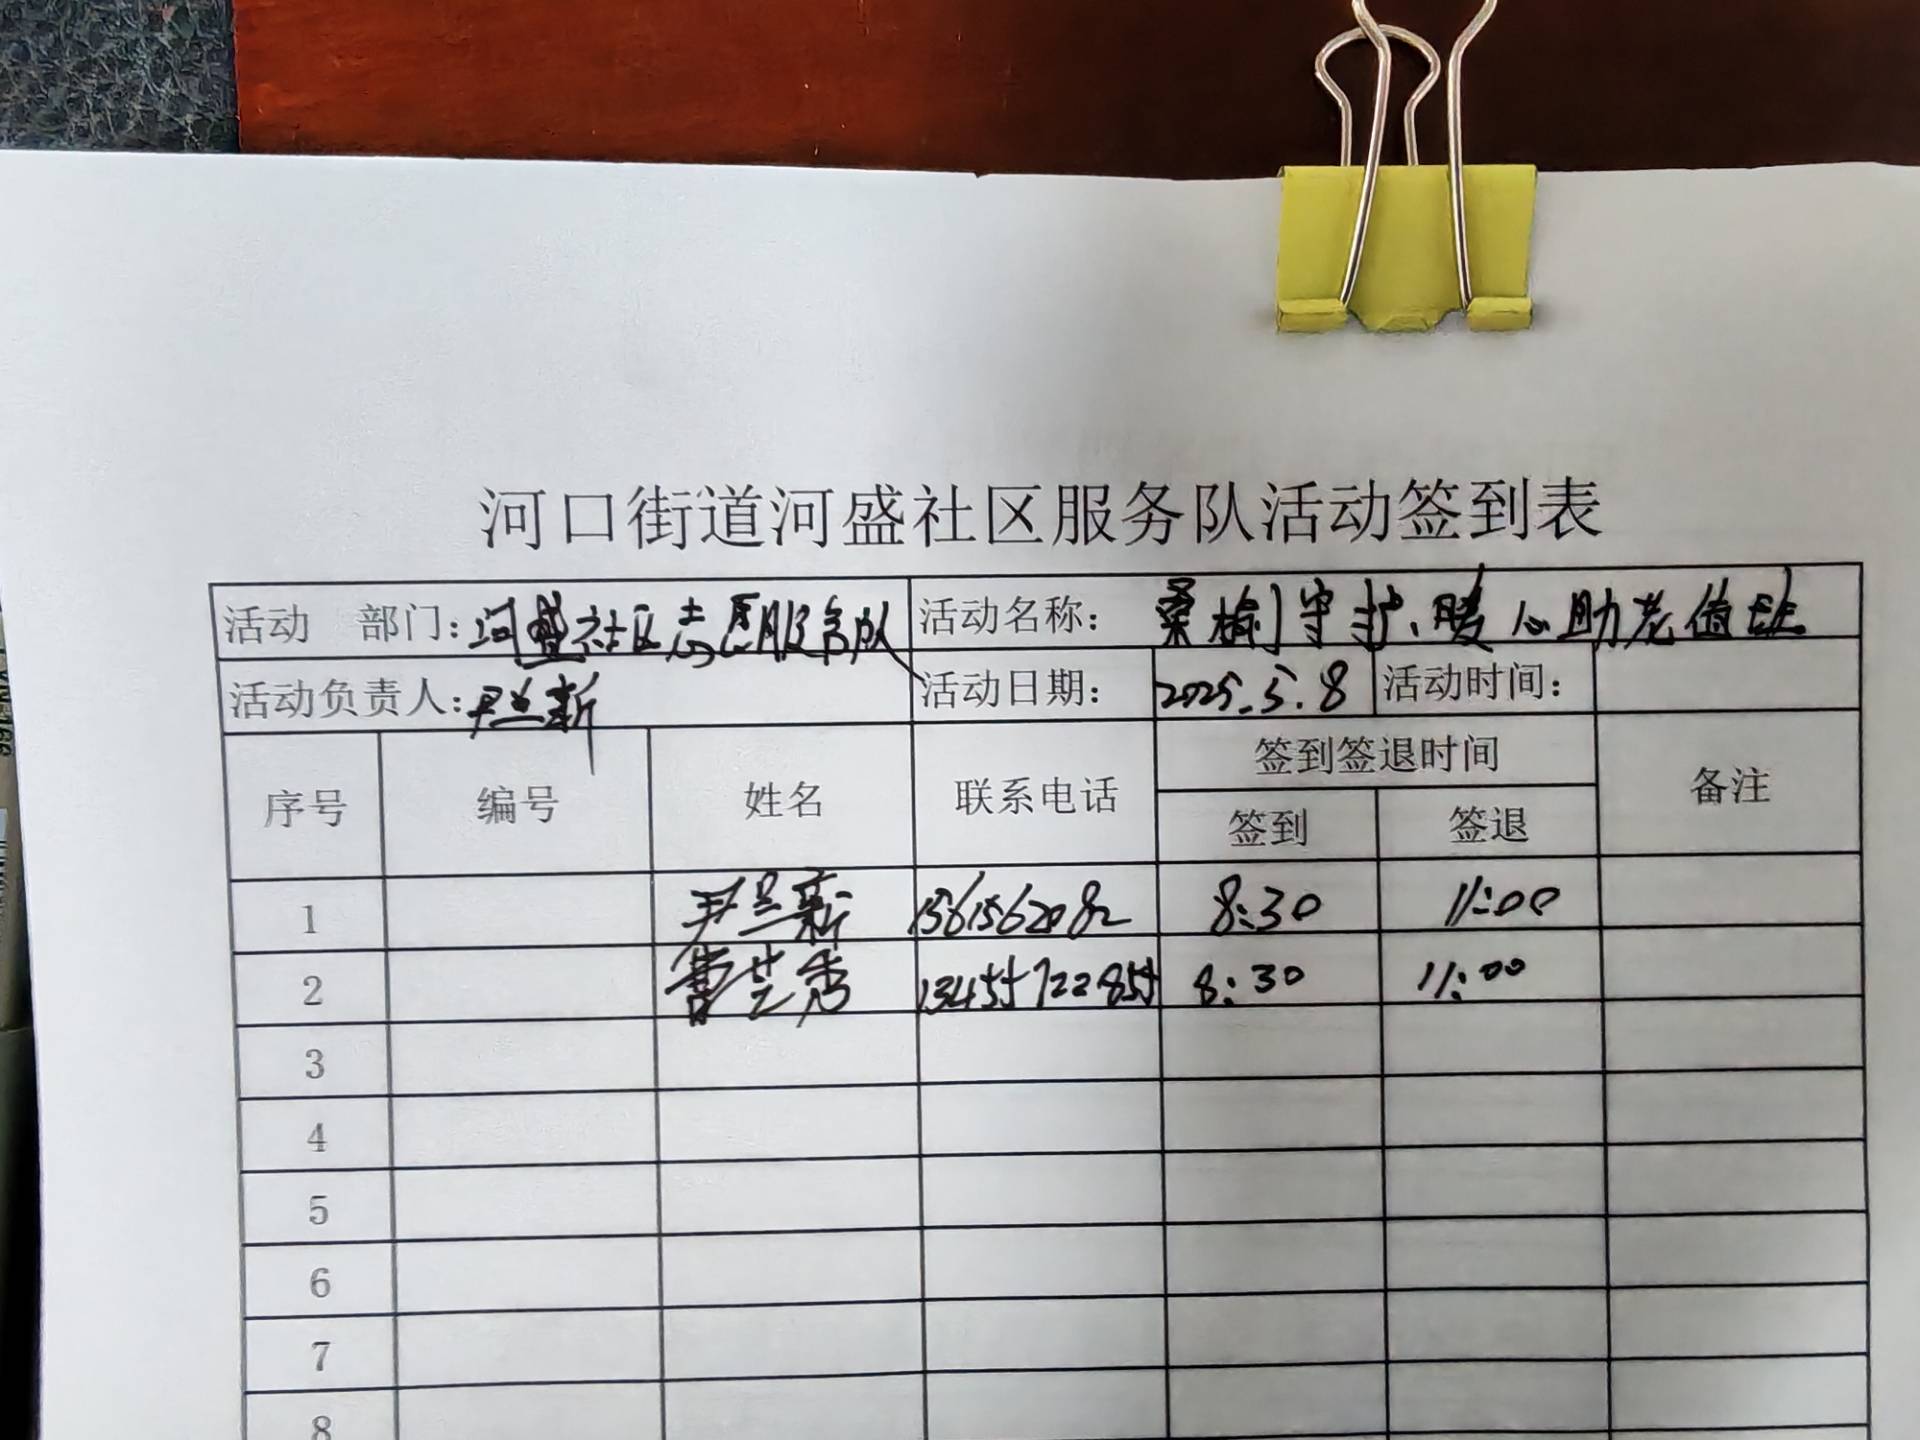 河口街道河盛社区服务队活动签到表
活动 部门：河盛社区志愿服务队 活动名称： 桑榆守护、暖心助老值班
活动负责人：尹兰新 活动日期： 2025.5.8 活动时间：
序号 编号 姓名 联系电话 签到签退时间 备注
签到 签退
1 尹兰新 1561562082 8:30 11:00
2 芝秀 8:30 11:00
3
4
5
6
7
8